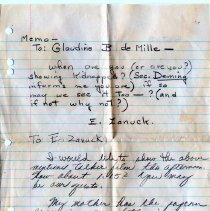 Memo —
To: Claudius B de Mille —
when are you (or are you?)
showing Kidnapped? (Sec. Deming
informs me you are) if so
may we see it too — ? (and
if not why not?)
E. Zanuck.
To E. Zanuck:
I would like to show the above
this afternoon.
How about 1:15? You may
be our guests.
My mother has the